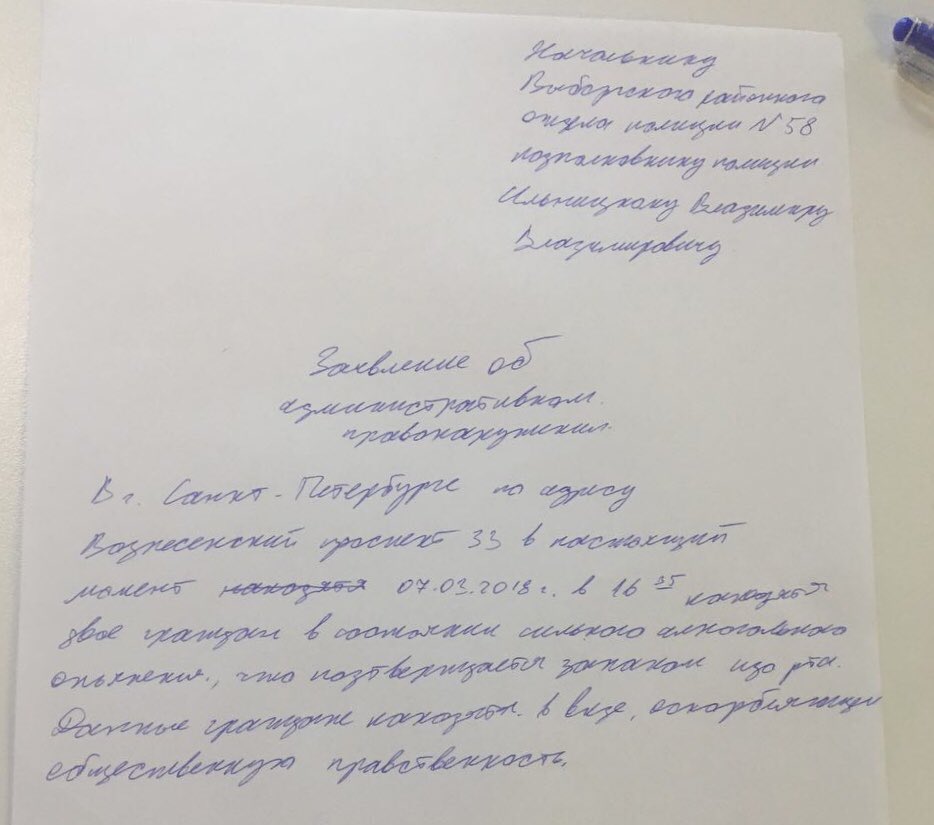 Начальнику
Выборгского районного
отдела полиции N 58
подполковнику полиции
Ильницкому Владимиру
Владимировичу
Заявление об
административном
правонарушении.
В г. Санкт-Петербурге по адресу
Вознесенский проспект 33 в настоящий
момент находятся 07.03.2018 г. в 16 35 находятся
двое граждан в состоянии сильного алкогольного
опьянения, что подтверждается запахом изо рта.
Данные граждане находятся в виде, оскорбляющем
общественную нравственность.